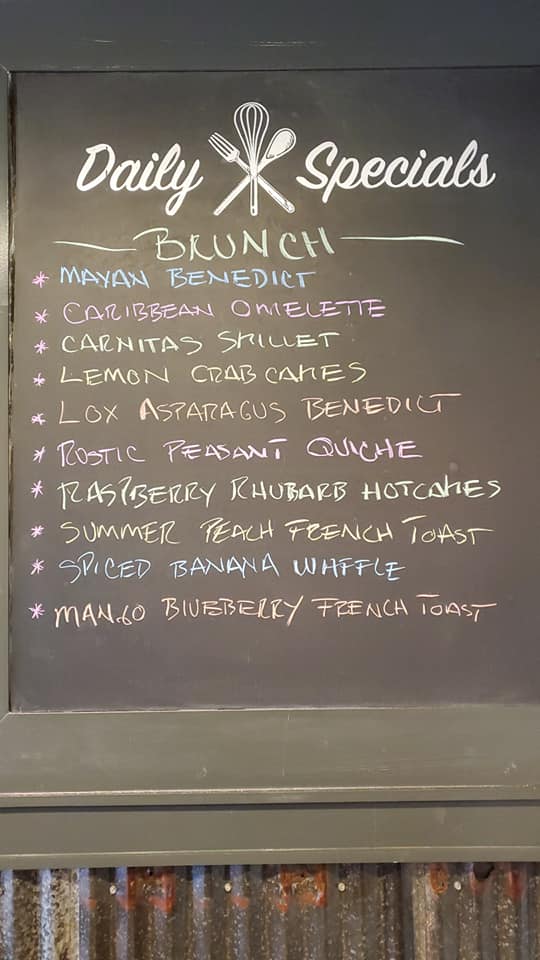 Daily Specials
BRUNCH
* MAYAN BENEDICT
* CARIBBEAN OMELETTE
* CARNITAS SKILLET
* LEMON CRAB CAKES
* LOX ASPARAGUS BENEDICT
* RUSTIC PEASANT QUICHE
* RASPBERRY RHUBARB HOTCAKES
* SUMMER PEACH FRENCH TOAST
* SPICED BANANA WAFFLE
* MANGO BLUEBERRY FRENCH TOAST